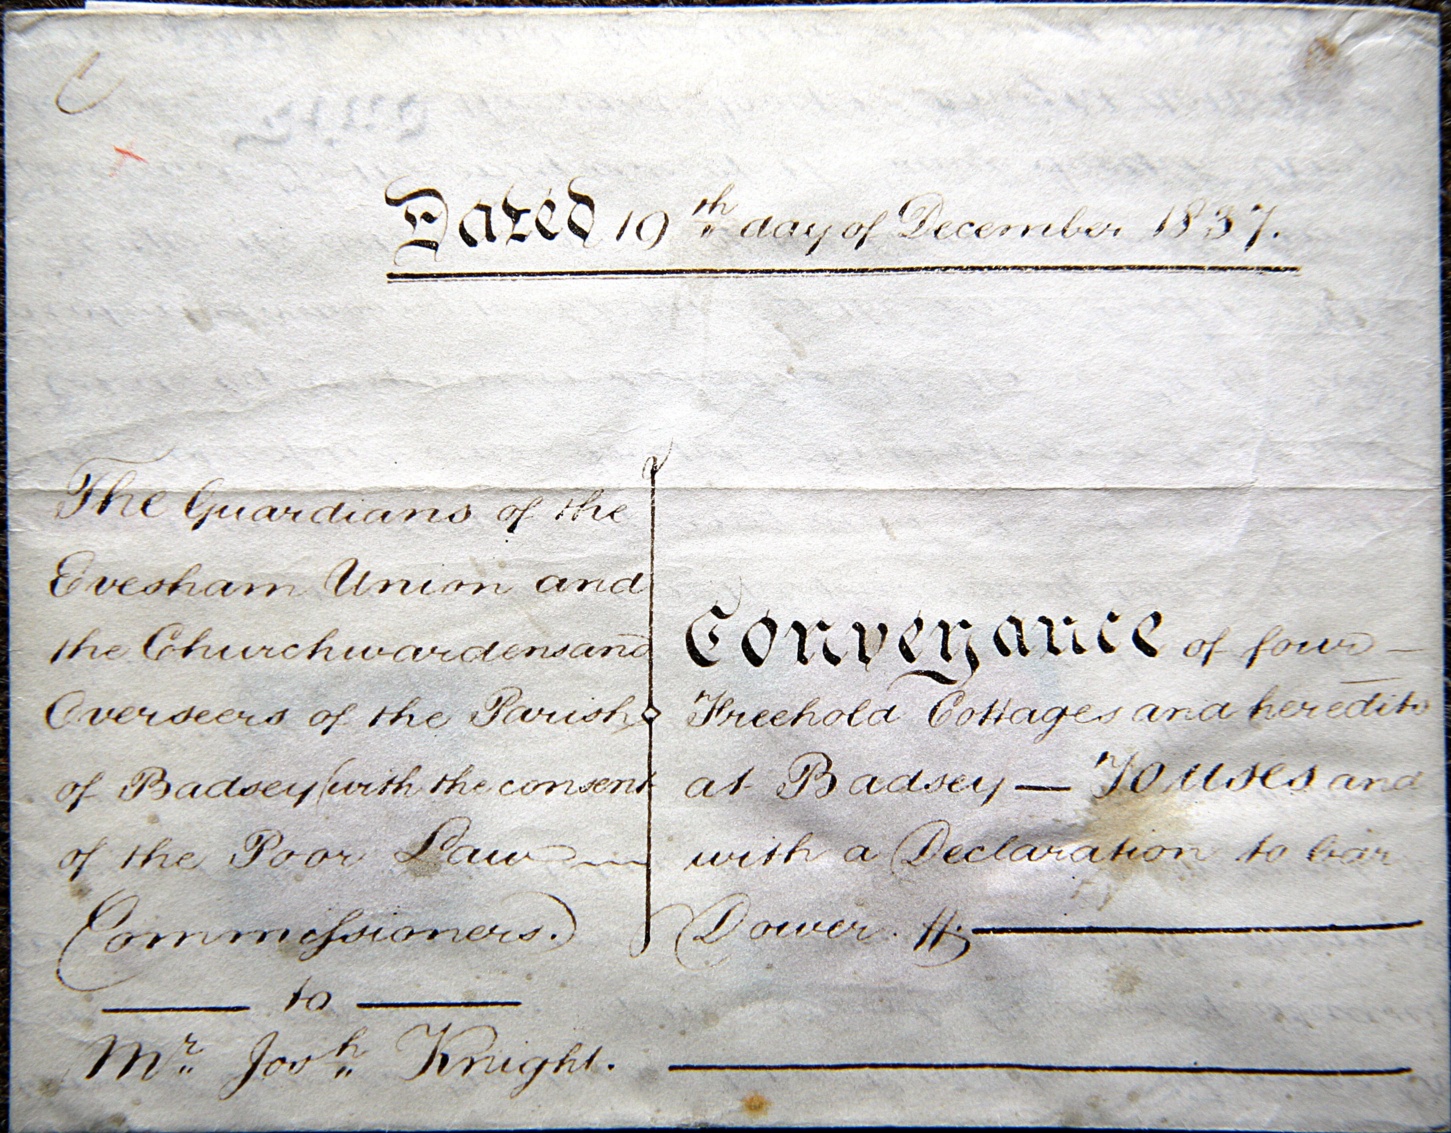 Dated 19th day of December 1837.
The Guardians of the
Evesham Union and
the Churchwardens and
Overseers of the Parish
of Badsey (with the consent
of the Poor Law
Commissioners.)
to
Mr. Josh. Knight.
Conveyance of four
Freehold Cottages and heredits
at Badsey — To uses and
with a Declaration to bar
Dower.